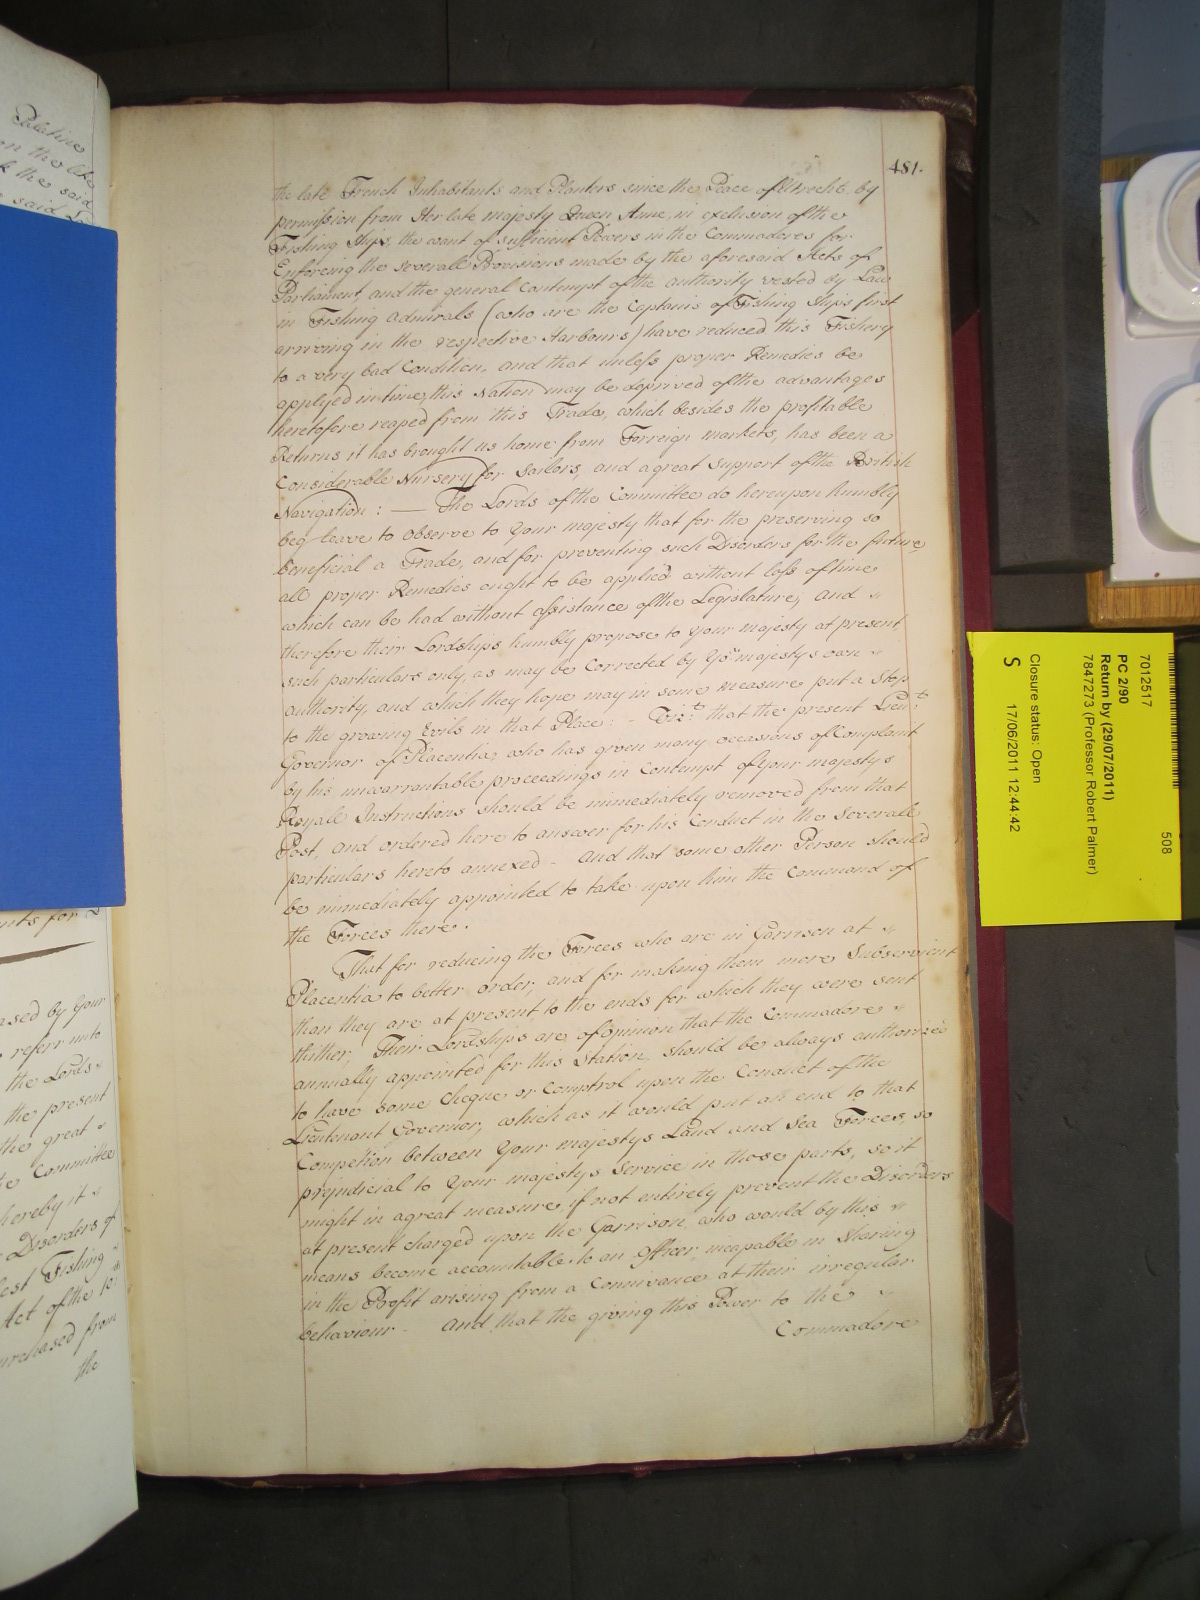 Palatine
on the like
the said
said
481.
the late French Inhabitants and Planters since the Peace of Utrecht, by
permission from Her late majesty Queen Anne, in exclusion of the
Fishing Ships, the want of sufficient Powers in the Commadores for
Enforcing the severall Provisions made by the aforesaid Acts of
Parliament, and the general Contempt of the authority vested by Law
in Fishing Admirals (who are the Captains of Fishing Ships first
arriving in the respective Harbours) have reduced this Fishery
to a very bad Condition, and that unless proper Remedies be
applyed in time, this Nation may be deprived of the advantages
heretofore reaped from this Trade, which besides the profitable
Returns it has brought us home from Forreign markets, has been a
Considerable Nursery for Sailors, and a great Support of the British
Navigation: — The Lords of the Committee do hereupon humbly
beg leave to observe to Your majesty that for the preserving so
beneficial a Trade, and for preventing such Disorders for the future,
all proper Remedies ought to be applied without loss of time
which can be had without assistance of the Legislature, And "
therefore their Lordships humbly propose to your majesty at present
such particulars only, as may be Corrected by Yor. majestys own "
authority, and which they hope may in some measure put a Stop
to the growing Evils in that Place: - Vizt. that the present Lieut.
Governor of Placentia, who has given many occasions of Complaint
by his unwarrantable proceedings in Contempt of Your majestys
Royall Instructions should be immediately removed from that
Post, and ordered here to answer for his Conduct in the Severall
particulars hereto annexed - And that some other Person should
be immediately appointed to take upon him the Command of
the Forces there.
That for reducing the Forces who are in Garrison at "
Placentia to better order, and for making them more Subservient
than they are at present to the ends for which they were sent
thither, Their Lordships are of Opinion that the Commadore "
annually appointed for this Station, should be always authorized
to have some Cheque or Comptrol upon the Conduct of the
Lieutenant Governor, which as it would put an end to that
Competion between Your majestys Land and Sea Forces, so
prejudicial to Your majestys Service in those parts, so it
might in a great measure, if not entirely prevent the Disorders
at present charged upon the Garrison, who would by this "
means become accountable to an Officer, incapable in Shareing
in the Profit arising from a Connivance at their irregular
behaviour - And that the giving this Power to the "
Commadore
nts for
ased by Your
referr unto
the Lords "
the present
the great "
Committee
hereby it "
Disorders of
Fishing
Act of the 10th
urchased from
the
7012517
508
PC 2/90
Return by (29/07/2011)
7847273 (Professor Robert Palmer)
Closure status: Open
S 17/06/2011 12:44:42